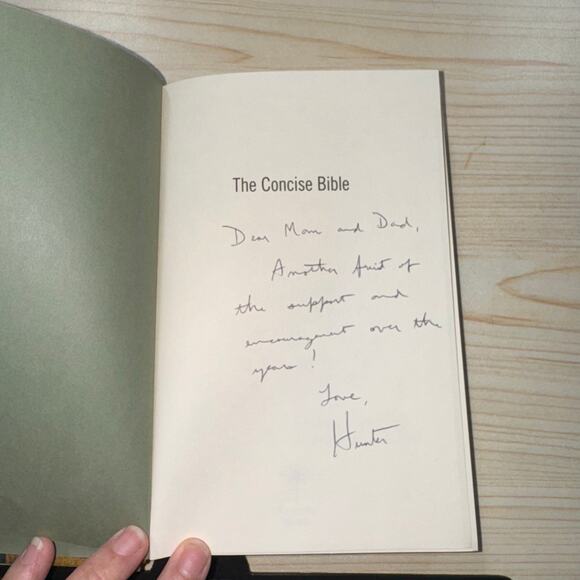 The Concise Bible
Dear Mom and Dad,
Another fruit of
the support and
encouragement over the
years!
Love,
Hunter